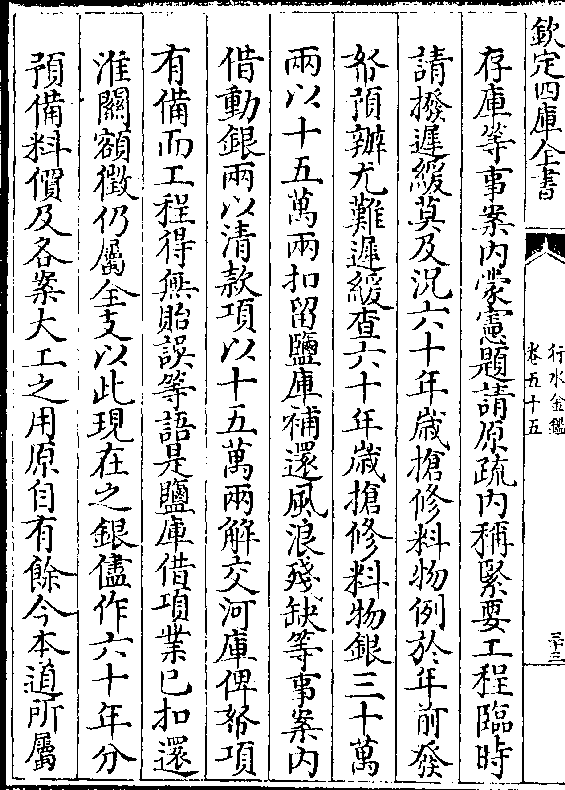 欽定四庫全書
行水金鑑
卷五十五
三十三
存庫等事案内蒙憲題請原疏内稱緊要工程臨時
請撥遲緩莫及況六十年歲搶修料物例於年前發
帑預辦尤難遲緩查六十年歲搶修料物銀三十萬
兩以十五萬兩扣留鹽庫補還風浪殘缺等事案内
借動銀兩以清款項以十五萬兩解交河庫俾帑項
有備而工程得無貽誤等語是鹽庫借項業已扣還
淮關額徵仍屬全支以此現在之銀儘作六十年分
預備料價及各案大工之用原自有餘今本道所屬